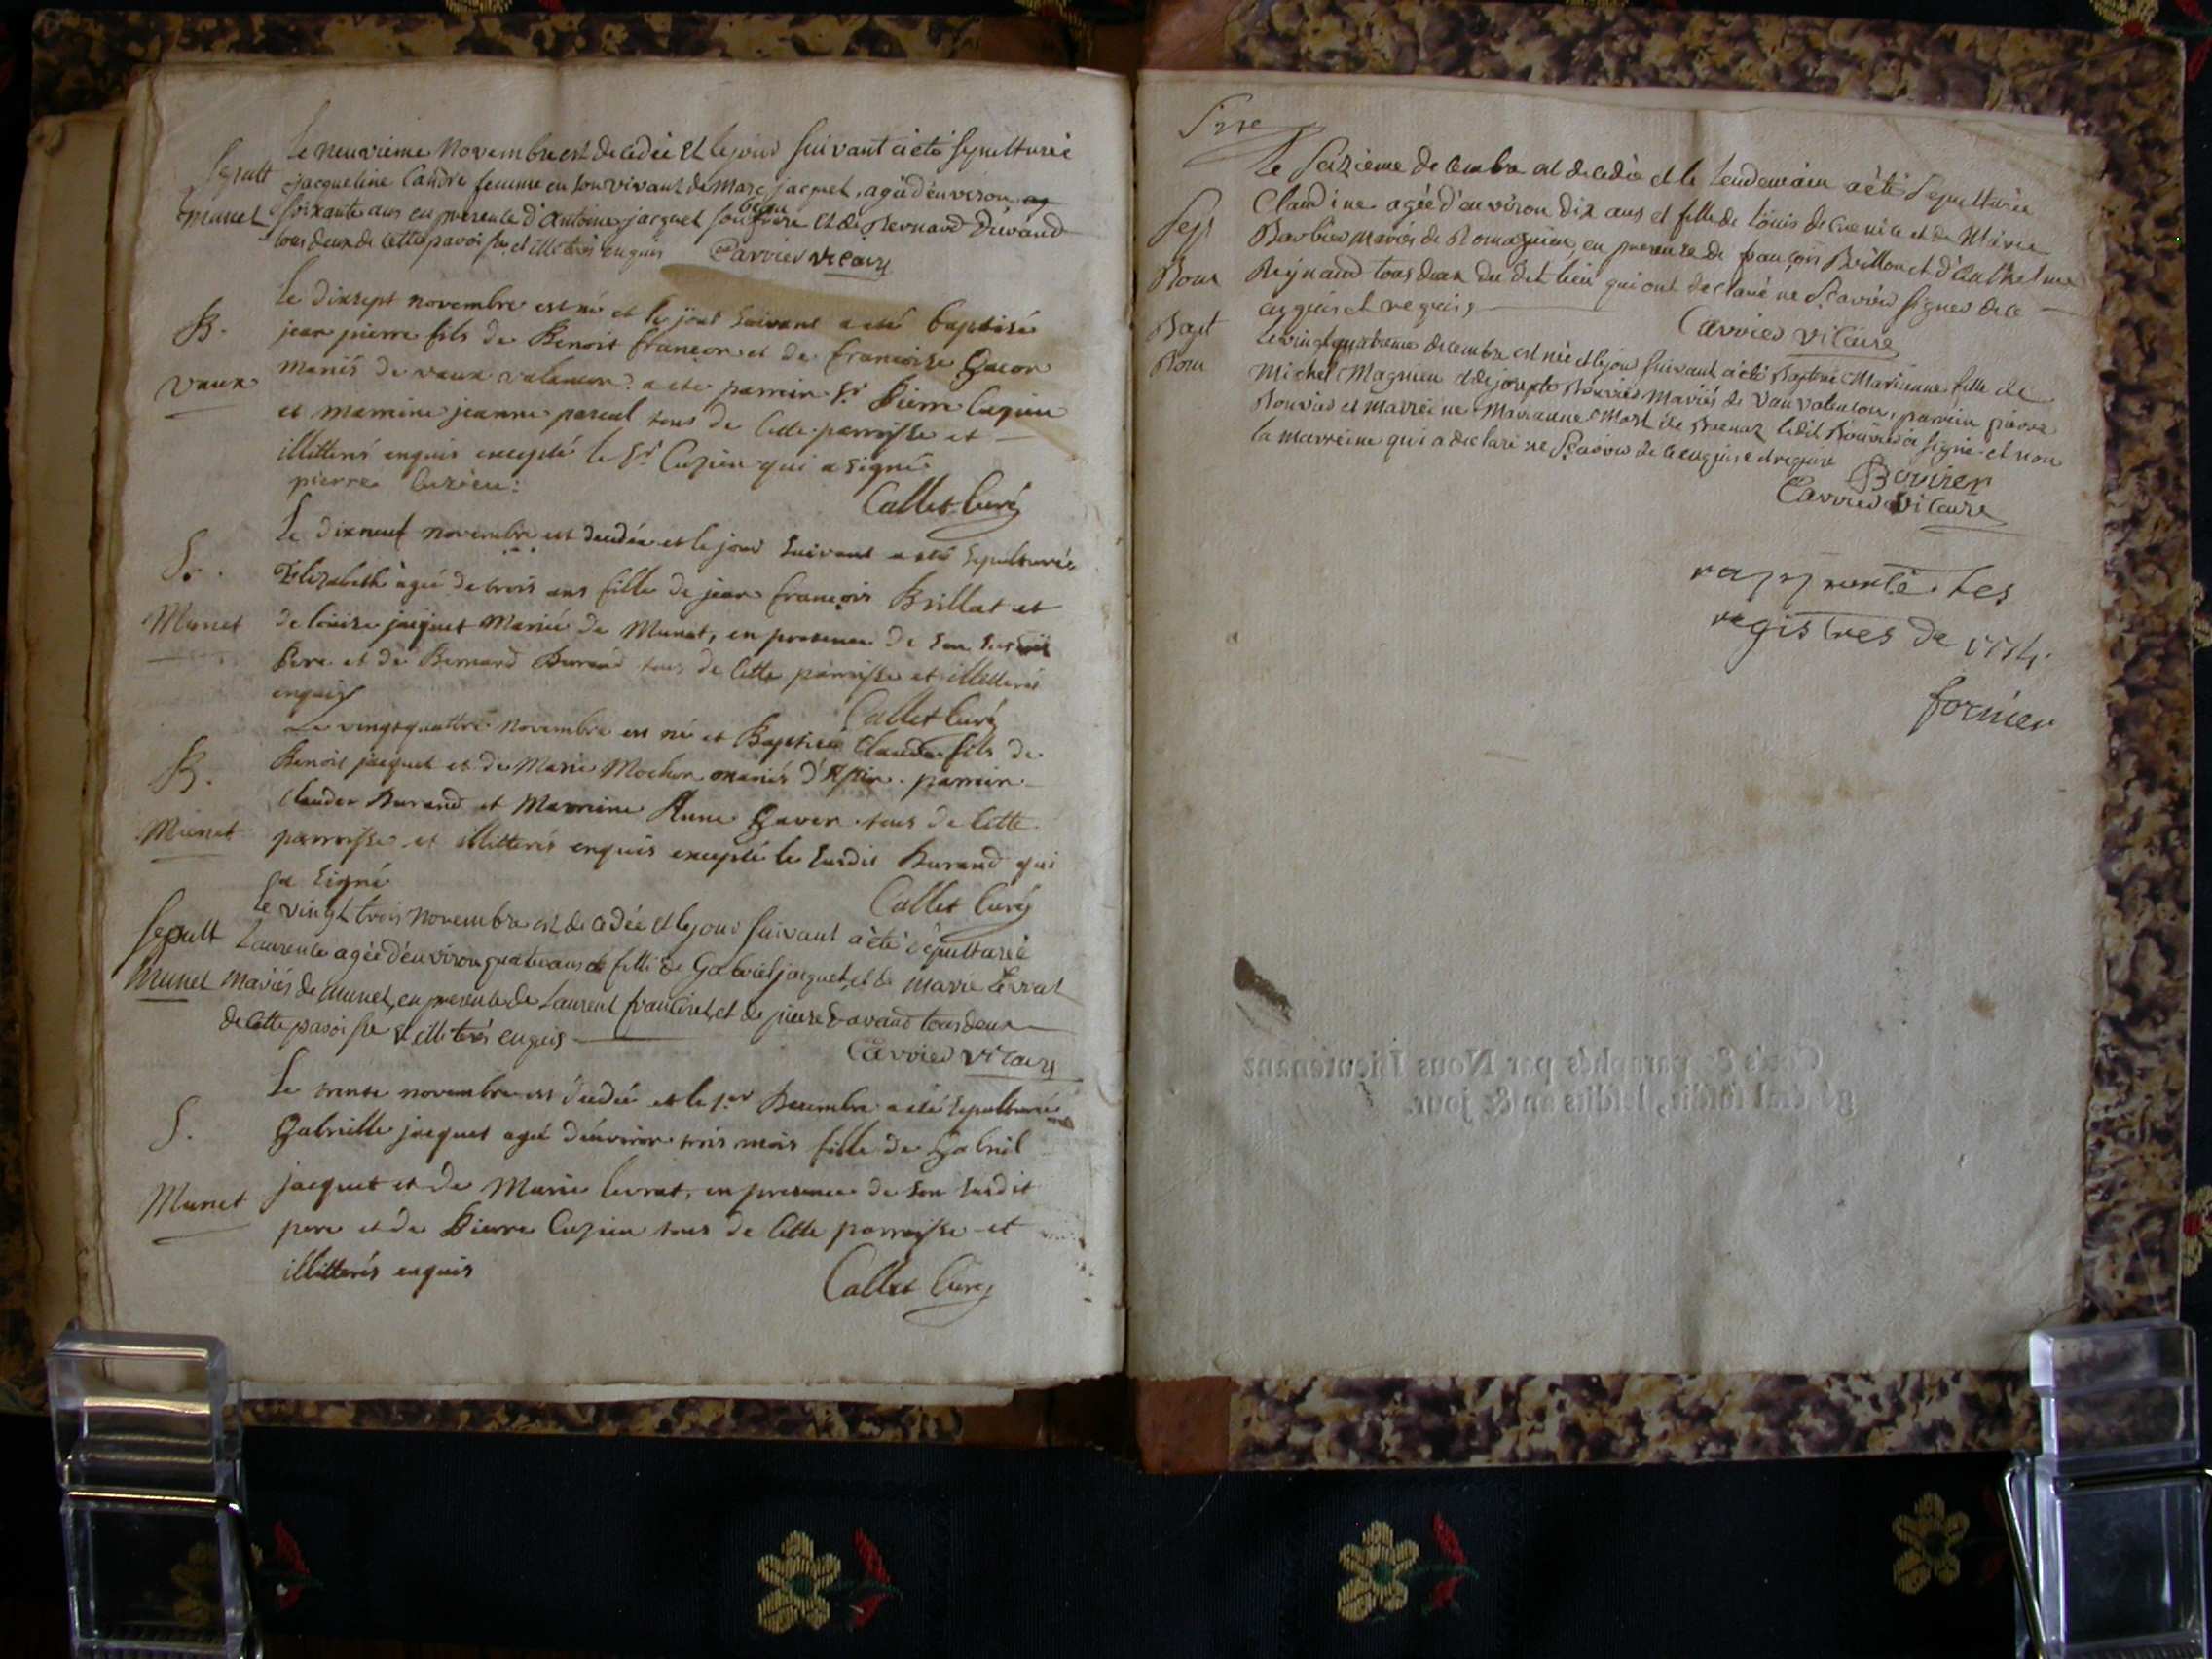 Le neuvieme Novembre est decedée et le jour suivant a été sepulturée
Sepult jacqueline Candre femme en son vivant de Marc jacquet, agée d'environ
munet soixante ans en presence d'antoine jacquet son beau frere et de Bernard Durand
tous deux de cette paroisse et illiterés enquis Carrier vicaire
Le dixsept novembre est né et le jour suivant a eté baptisé
B. jean pierre fils de Benoit françon et de francoise Gacon
vaux mariés de vaux valancon. a eté parrein Sr Pierre Cuzieu
et marreine jeanne pascal tous de cette parroisse et
illitterés enquis excepté le Sr Cuzieu qui a signé
pierre Cuzieu:
Callet Curé
Le dixneuf novembre est decedée et le jour suivant a eté sepulturée
S. Elizabeth agée de trois ans fille de jean françois Brillat et
Munet de loüise jacquet Mariés de Munet, en presence de son susdit
Pere et de Bernard Durand tous de cette parroisse et illitterés
enquis
Callet Curé
Le vingtquattre novembre est né et Baptisé Claude fils de
B. Benoit jacquet et de Marie Mochon mariés d' parrein
Munet Claude Durand et Marreine Anne Gacon tous de cette
parroisse et illitterés enquis excepté le susdit Durand qui
a signé
Callet Curé
Le vingt trois novembre est decedée et le jour suivant a été sepulturée
Sepult Laurence agée d'environ quatre ans fille de Gabriel jacquet, et de marie Levrat
Munet mariés de munet, en presence de Laurent françon, et de pierre Durand tous deux
de cette paroisse et illiterés enquis
Carrier vicaire
Le trente novembre est decedée et le 1.er Decembre a eté sepulturée
S. Gabrielle jacquet agée d'environ trois mois fille de Gabriel
Munet jacquet et de Marie levrat, en presence de son susdit
pere et de Pierre Cuzieu tous de cette parroisse et
illitterés enquis
Callet Curé
Le seizieme decembre est decedée et le lendemain a été sepulturée
Sep Claudine agée d'environ dix ans et fille de Loüis de et de Marie
Rom Barbier mariés de Romagnieu, en presence de françois Brillon et d'Anthelme
Reynaud tous deux du dit lieu qui ont declaré ne sçavoir signer de ce
enquis et requis
Carrier vicaire
Bapt Le vingtquatrieme decembre est née et le jour suivant a été Baptisée Marianne fille de
Rom Michel Magnieu et de josephte Bouvier mariés de vauvalencon, parrein pierre
Bouvier et marreine Marianne Mort de Brenaz ledit Bouvier a signé et non
la marreine qui a declaré ne sçavoir de ce enquise et requise
Bouvier
Carrier Vicaire
rapporté les
registres de 1774.
fornier
Cotés & paraphés par Nous Lieutenant
général susdit, lesdits an & jour.